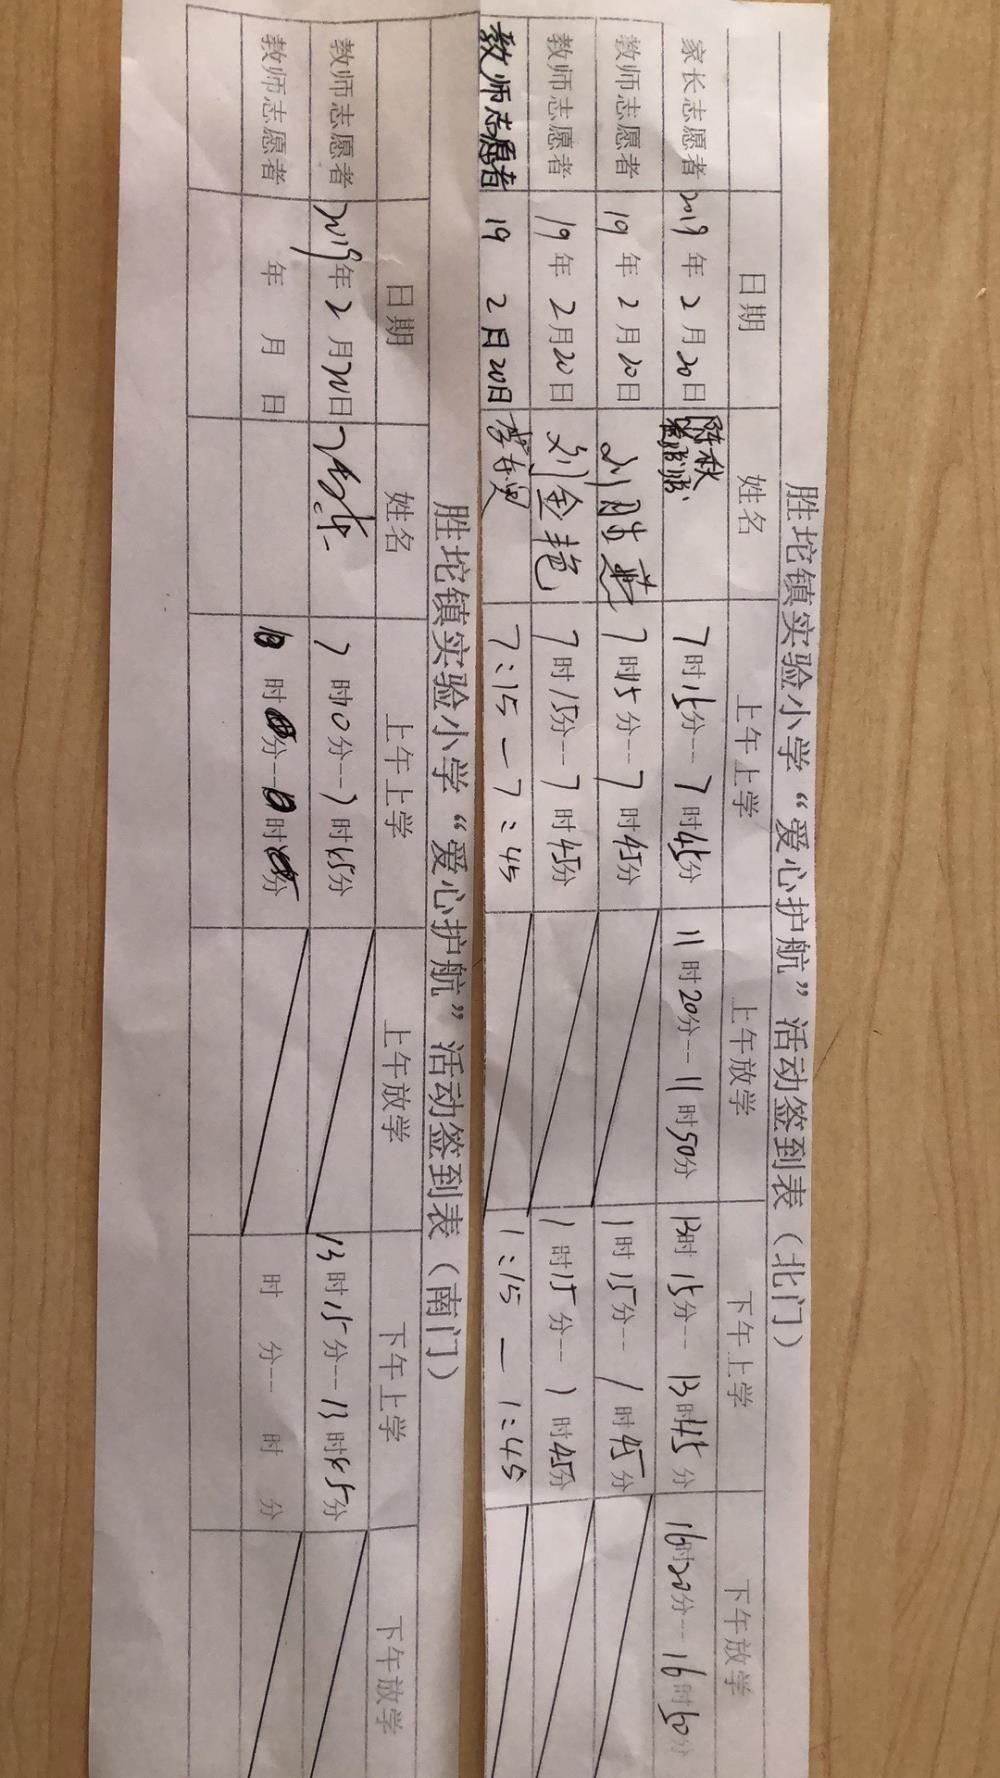 胜坨镇实验小学“爱心护航”活动签到表（北门）
日期 姓名 上午上学 上午放学 下午上学 下午放学
家长志愿者 2019年2月20日 陈秋 7时15分--7时45分 11时20分--11时50分 13时15分--13时45分 16时20分--16时50分
教师志愿者 19年2月20日 刘胜燕 7时15分--7时45分 1时15分--1时45分
教师志愿者 19年2月20日 刘金艳 7时15分--7时45分 1时15分--1时45分
教师志愿者 19 2日20日 7:15—7:45 1:15—1:45
胜坨镇实验小学“爱心护航”活动签到表（南门）
日期 姓名 上午上学 上午放学 下午上学 下午放学
教师志愿者 2019年2月20日 7时10分--7时45分 13时15分--13时45分
教师志愿者 年 月 日 时 分-- 时 分 时 分-- 时 分